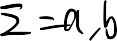 Σ = a, b